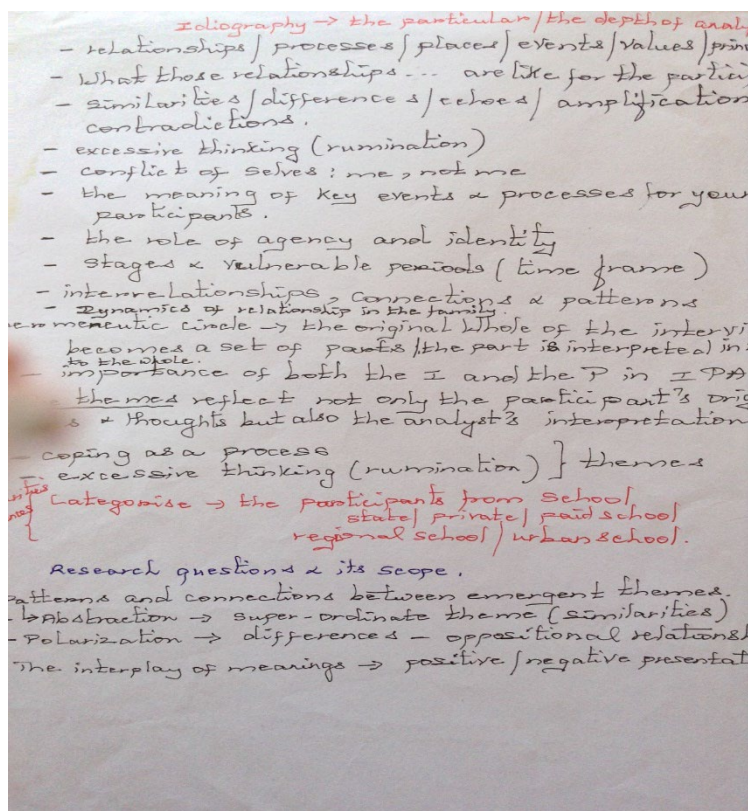 Idiography → the particular/the depth of analy
- relationships/processes/places/events/values/prin
- What those relationships... are like for the partici
- similarities/differences/echoes/amplification
contradictions.
- excessive thinking (rumination)
- conflict of selves: me, not me
- the meaning of key events & processes for your
participants.
- the role of agency and identity
- stages & vulnerable periods (time frame)
- interrelationships, connections & patterns
- Dynamics of relationship in the family.
ermeneutic circle → the original whole of the intervi
becomes a set of parts/the part is interpreted in
to the whole.
- importance of both the I and the P in IPA
themes reflect not only the participant's orig
s & thoughts but also the analyst's interpretation
- coping as a process
- excessive thinking (rumination) } themes
Categorise → the participants from school
state/private/paid school
regional school/urban school.
Research questions & its scope.
Patterns and connections between emergent themes.
- ↳ Abstraction → super-ordinate theme (similarities)
- Polarization → differences - oppositional relations
The interplay of meanings → positive/negative presentat